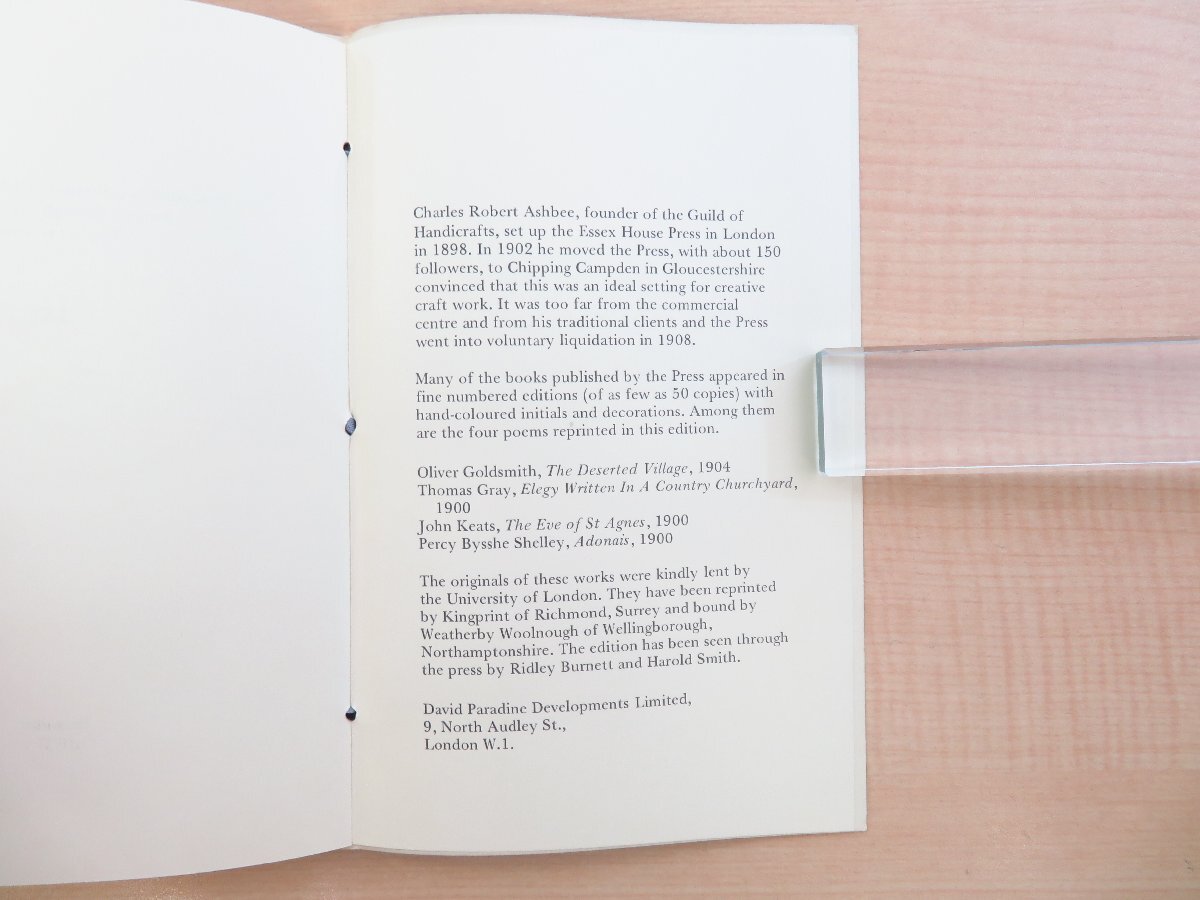 Charles Robert Ashbee, founder of the Guild of
Handicrafts, set up the Essex House Press in London
in 1898. In 1902 he moved the Press, with about 150
followers, to Chipping Campden in Gloucestershire
convinced that this was an ideal setting for creative
craft work. It was too far from the commercial
centre and from his traditional clients and the Press
went into voluntary liquidation in 1908.
Many of the books published by the Press appeared in
fine numbered editions (of as few as 50 copies) with
hand-coloured initials and decorations. Among them
are the four poems reprinted in this edition.
Oliver Goldsmith, The Deserted Village, 1904
Thomas Gray, Elegy Written In A Country Churchyard,
1900
John Keats, The Eve of St Agnes, 1900
Percy Bysshe Shelley, Adonais, 1900
The originals of these works were kindly lent by
the University of London. They have been reprinted
by Kingprint of Richmond, Surrey and bound by
Weatherby Woolnough of Wellingborough,
Northamptonshire. The edition has been seen through
the press by Ridley Burnett and Harold Smith.
David Paradine Developments Limited,
9, North Audley St.,
London W.1.